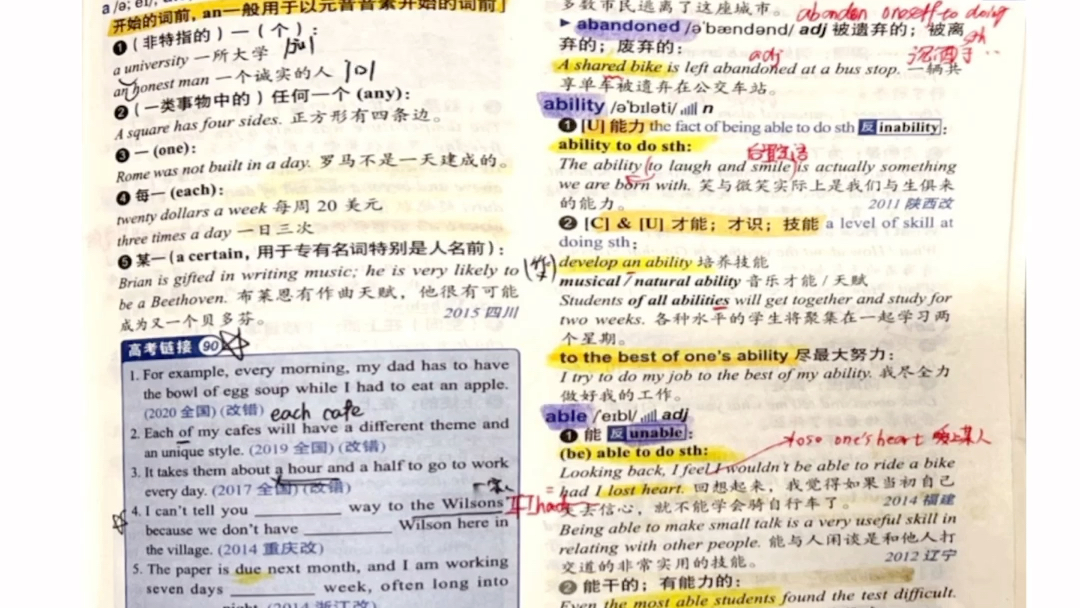 a /ə; eɪ/,
开始的词前, an一般用于以元音音素开始的词前」
❶ (非特指的) 一 (个):
a university 一所大学 /ju/
an honest man 一个诚实的人 /ɒ/
❷ (一类事物中的) 任何一个 (any):
A square has four sides. 正方形有四条边。
❸ 一 (one):
Rome was not built in a day. 罗马不是一天建成的。
❹ 每一 (each):
twenty dollars a week 每周 20 美元
three times a day 一日三次
❺ 某一 (a certain, 用于专有名词特别是人名前):
Brian is gifted in writing music; he is very likely to
be a Beethoven. 布莱恩有作曲天赋, 他很有可能
成为又一个贝多芬。 2015 四川
高考链接 90
1. For example, every morning, my dad has to have
the bowl of egg soup while I had to eat an apple.
(2020 全国) (改错) each cafe
2. Each of my cafes will have a different theme and
an unique style. (2019 全国) (改错)
3. It takes them about a hour and a half to go to work
every day. (2017 全国) (改错)
4. I can't tell you ________ way to the Wilsons
because we don't have ________ Wilson here in
the village. (2014 重庆改)
5. The paper is due next month, and I am working
seven days ________ week, often long into
night. (2014 浙江改)
多数市民逃离了这座城市。 abandon oneself to doing
sth
▶ abandoned /ə'bændənd/ adj 被遗弃的; 被离
弃的; 废弃的: adj 沉湎于…
A shared bike is left abandoned at a bus stop. 一辆共
享单车被遗弃在公交车站。
ability /ə'bɪləti/ n
❶ [U] 能力 the fact of being able to do sth 反 inability:
ability to do sth:
The ability to laugh and smile is actually something
we are born with. 笑与微笑实际上是我们与生俱来
的能力。 2011 陕西改
❷ [C] & [U] 才能; 才识; 技能 a level of skill at
doing sth:
develop an ability 培养技能
musical / natural ability 音乐才能 / 天赋
Students of all abilities will get together and study for
two weeks. 各种水平的学生将聚集在一起学习两
个星期。
to the best of one's ability 尽最大努力:
I try to do my job to the best of my ability. 我尽全力
做好我的工作。
able /'eɪbl/ adj
❶ 能 反 unable:
(be) able to do sth: lose one's heart 爱上某人
Looking back, I feel I wouldn't be able to ride a bike
had I lost heart. 回想起来, 我觉得如果当初自己
= If I had
失去信心, 就不能学会骑自行车了。 2014 福建
Being able to make small talk is a very useful skill in
relating with other people. 能与人闲谈是和他人打
交道的非常实用的技能。 2012 辽宁
❷ 能干的; 有能力的:
Even the most able students found the test difficult.